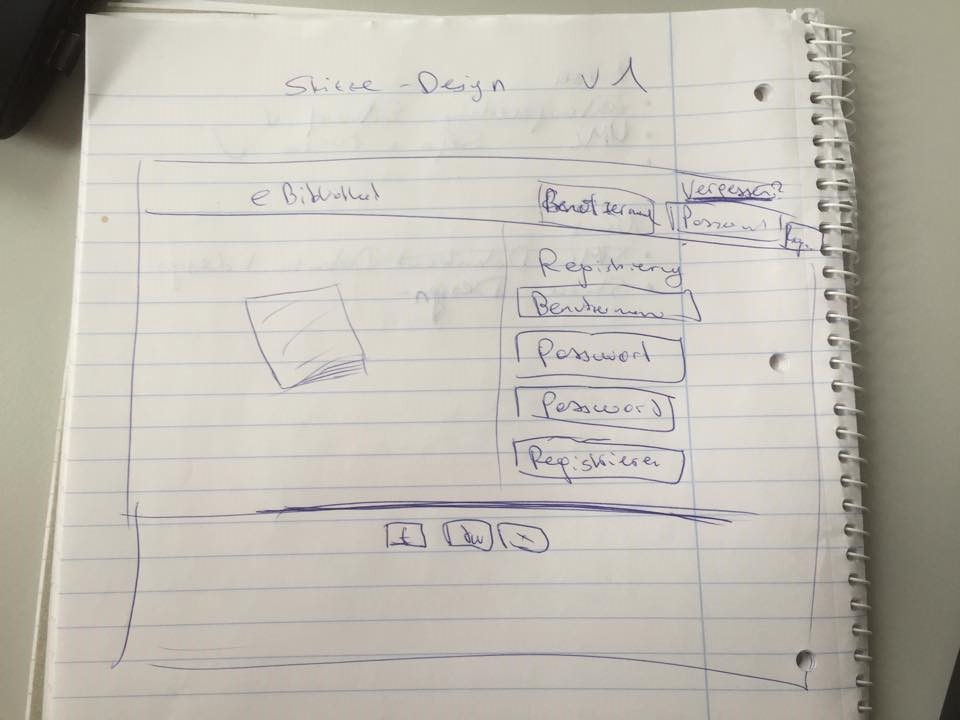 Skizze - Design v 1
eBibliothek
Vergessen?
Benutzername
Passwort
Reg.
Registrierung
Benutzername
Passwort
Password
Registrieren
f